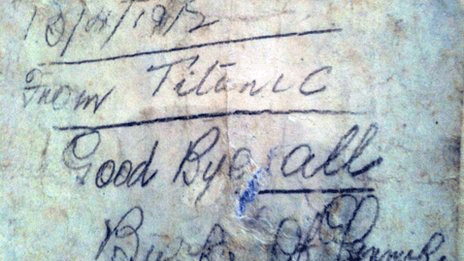 13/4/1912
From Titanic
Good Bye all
Burke of Glanmire